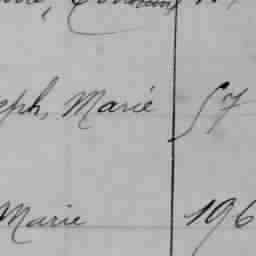 eph, Marie 57
Marie 196